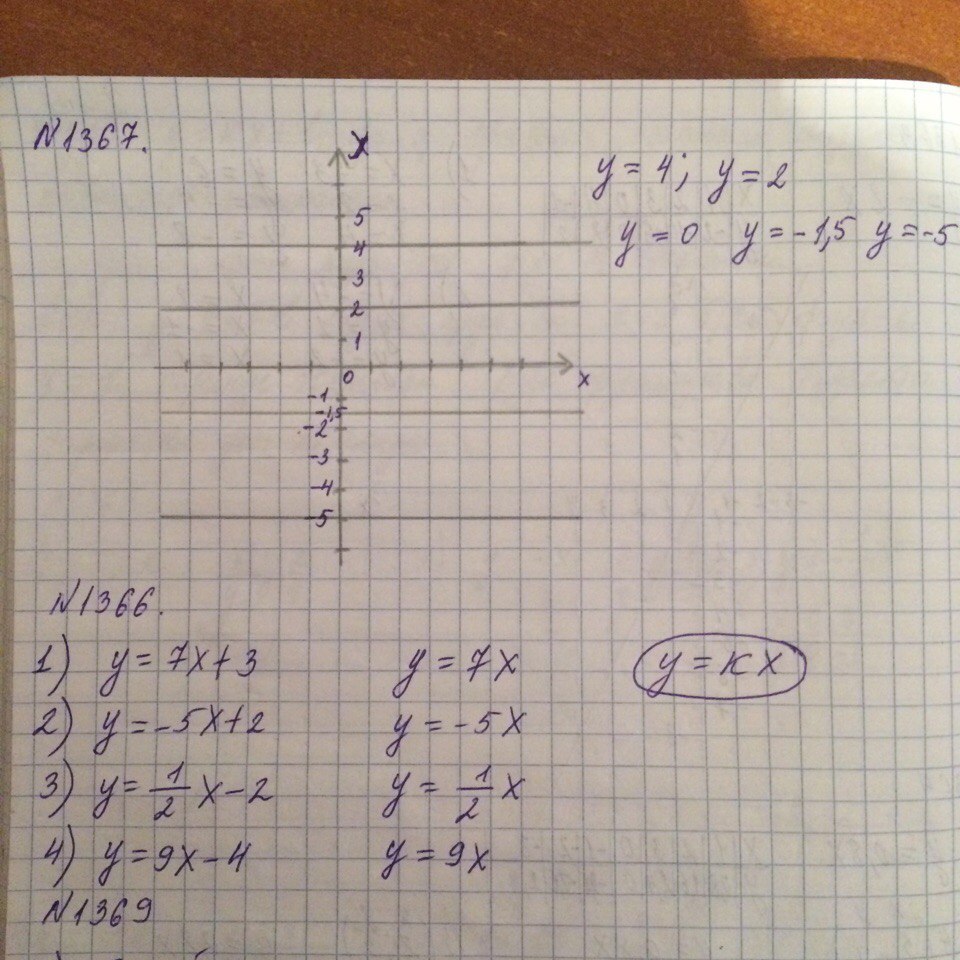 N1367.
X
y = 4; y = 2
y = 0 y = -1,5 y = -5
5
4
3
2
1
0
x
-1
-1,5
-2
-3
-4
-5
N1366.
1) y = 7x+3 y = 7x y = кx
2) y = -5x+2 y = -5x
3) y = 1/2 x - 2 y = 1/2 x
4) y = 9x - 4 y = 9x
N1369